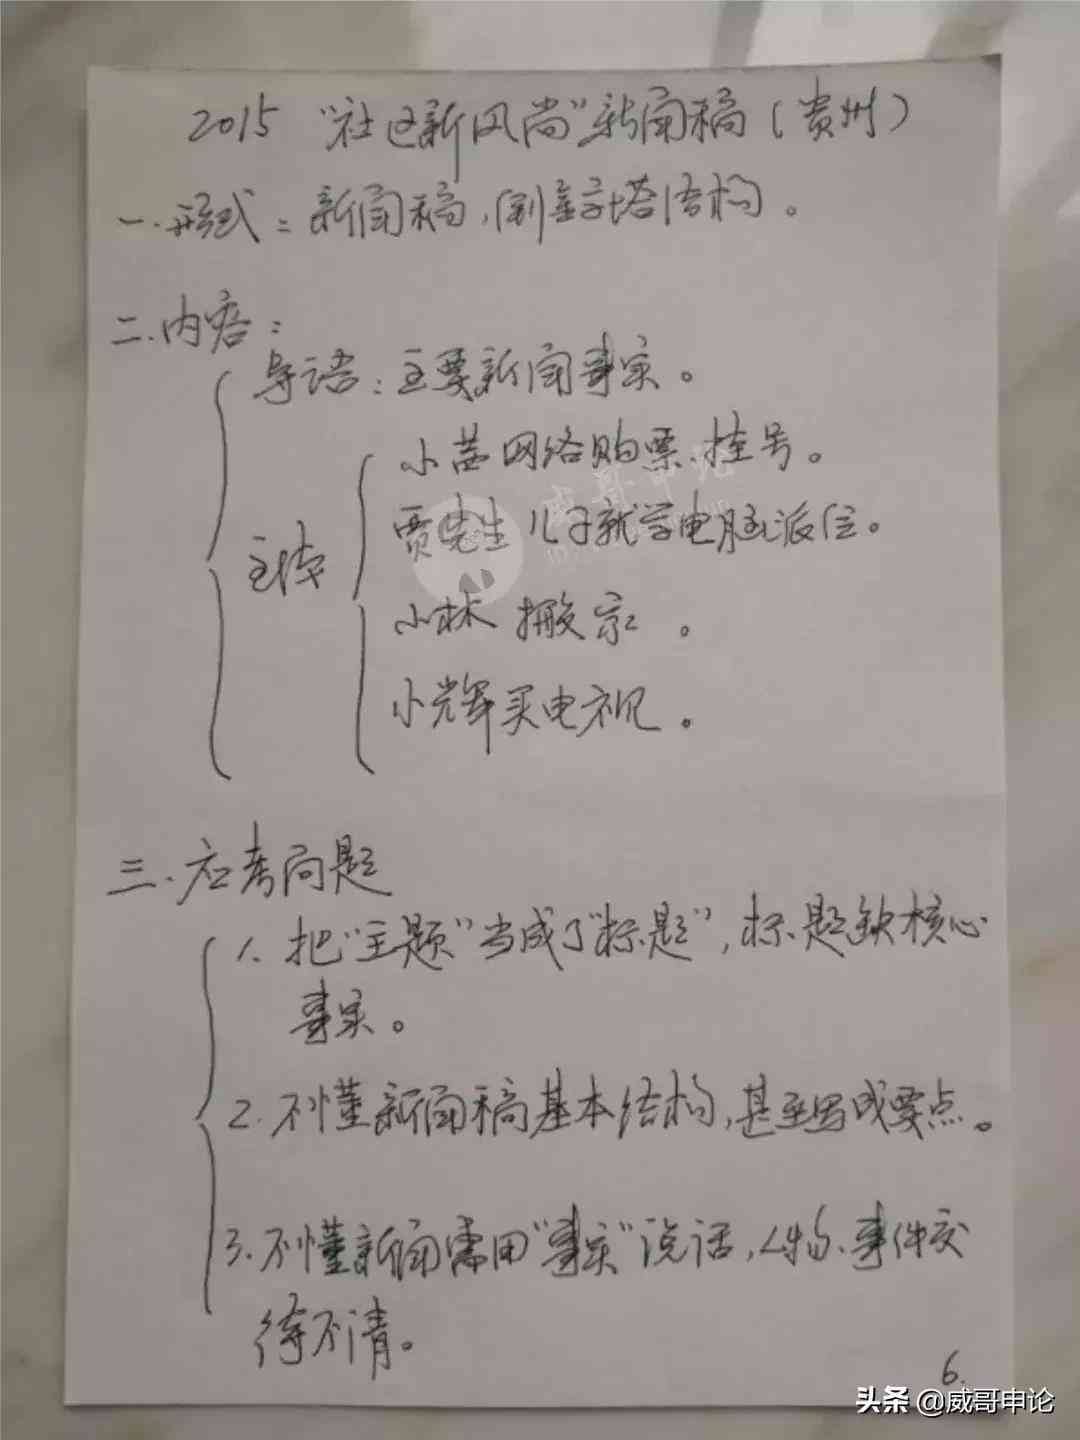 2015 “社区新风尚”新闻稿(贵州)
一.形式:新闻稿,倒金字塔结构。
二.内容:
导语:主要新闻事实。
主体
小茜网络购票、挂号。
贾先生儿子就学电脑派位。
小林搬家。
小辉买电视。
三.应考问题
1.把“主题”当成了“标题”,标题缺核心
事实。
2.不懂新闻稿基本结构,甚至写成要点。
3.不懂新闻需用“事实”说话,人物、事件交
待不清。
6.
威哥申论
头条 @威哥申论